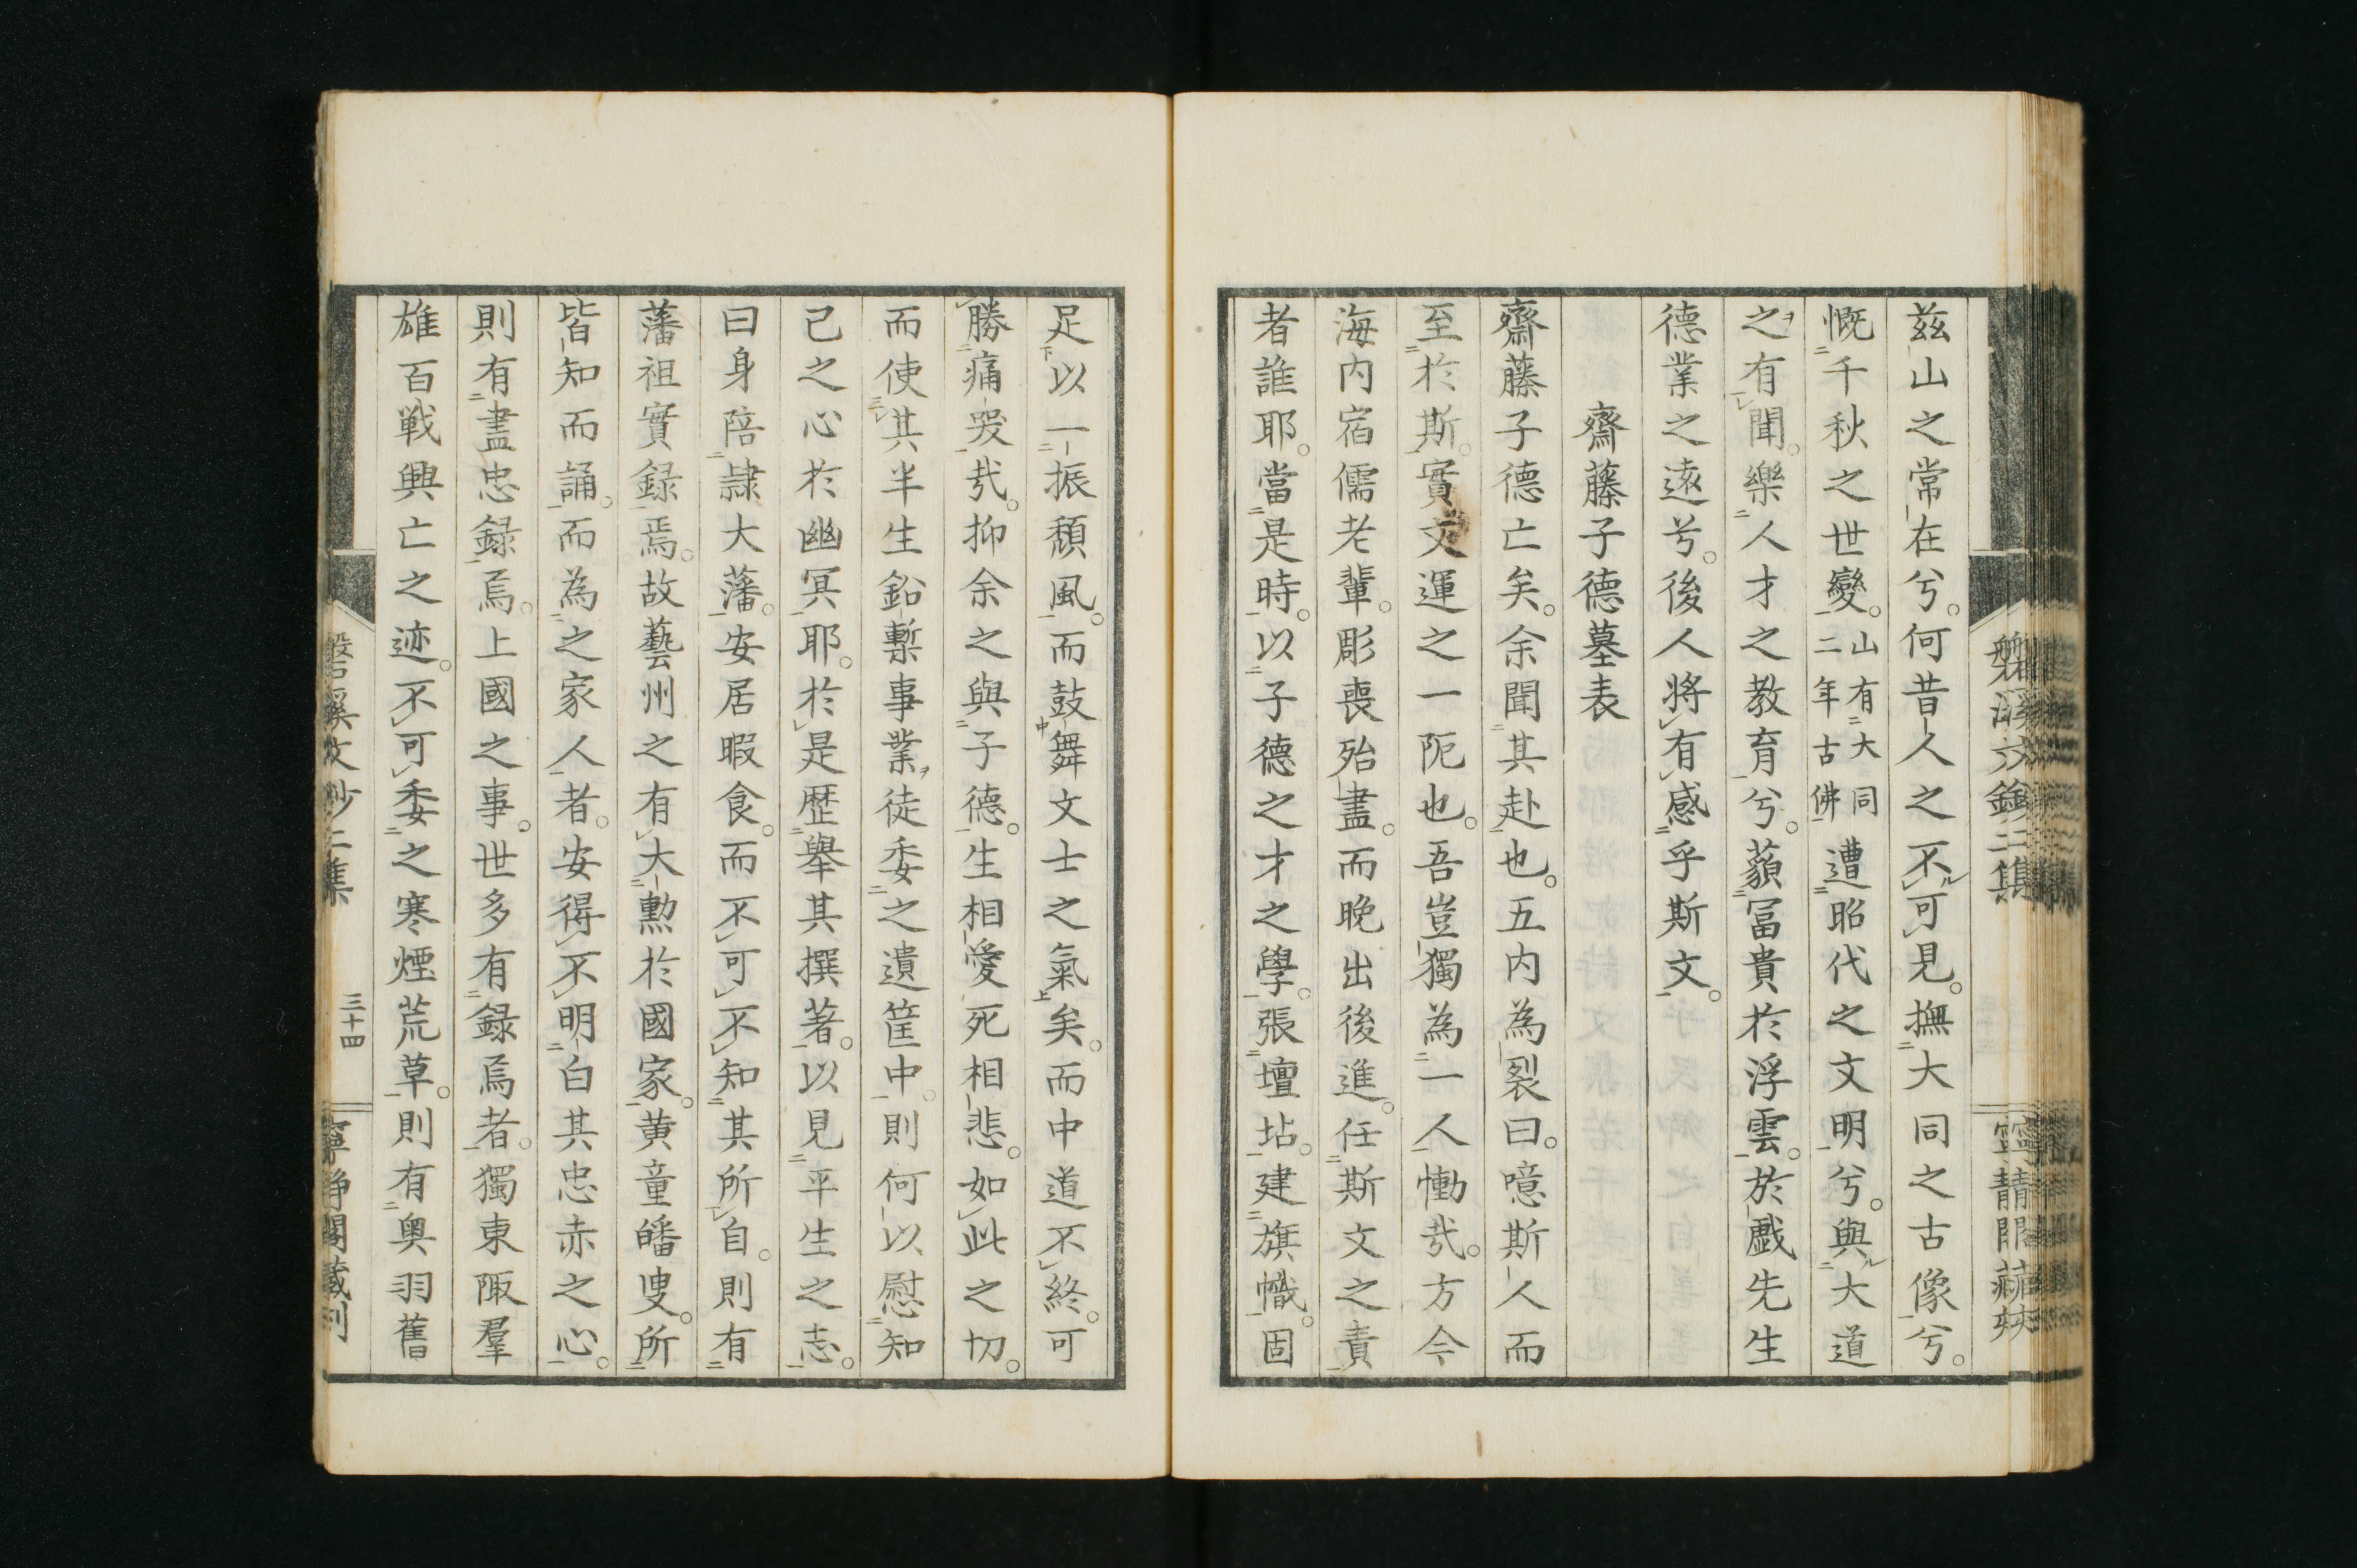 茲山之常在兮。何昔人之不可見。撫大同之古像兮。
慨千秋之世變。山有大同二年古佛遭昭代之文明兮。與大道
之有聞。樂人才之教育兮。蘋冨貴於浮雲。於戲先生
德業之遠兮。後人將有感乎斯文。
齋藤子德墓表
齋藤子德亡矣。余聞其赴也。五内為裂曰。噫斯人而
至於斯。實文運之一阨也。吾豈獨為一人慟哉。方今
海内宿儒老輩。彫喪殆盡。而晚出後進。任斯文之責
者誰耶。當是時。以子德之才之學。張壇坫。建旗幟。固
足以一振頹風。而鼓舞文士之氣矣。而中道不終。可
勝痛哭哉。抑余之與子德。生相愛死相悲。如此之切。
而使其半生鉛槧事業。徒委之遺筐中。則何以慰知
己之心於幽冥耶。於是歷舉其撰著。以見平生之志。
曰身陪隷大藩。安居暇食。而不可不知其所自。則有
藩祖實録焉。故藝州之有大勲於國家。黄童皤叟。所
皆知而誦。而為之家人者。安得不明白其忠赤之心。
則有盡忠録焉。上國之事。世多有録焉者。獨東陬羣
雄百戦興亡之迹。不可委之寒煙荒草。則有奥羽舊
磐溪文鈔二集
三十四
寧静閣藏刋